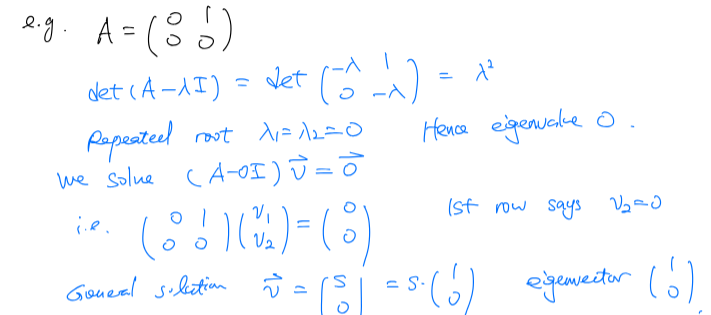 e.g. A = (0 1 0 0)
det(A-λI) = det (-λ 1 0 -λ) = λ²
Repeated root λ₁=λ₂=0 Hence eigenvalue 0.
We solve (A-0I) v⃗ = 0⃗
i.e. (0 1 0 0)(v₁ v₂) = (0 0) 1st row says v₂=0
General solution v⃗ = (s 0) = s·(1 0) eigenvector (1 0).